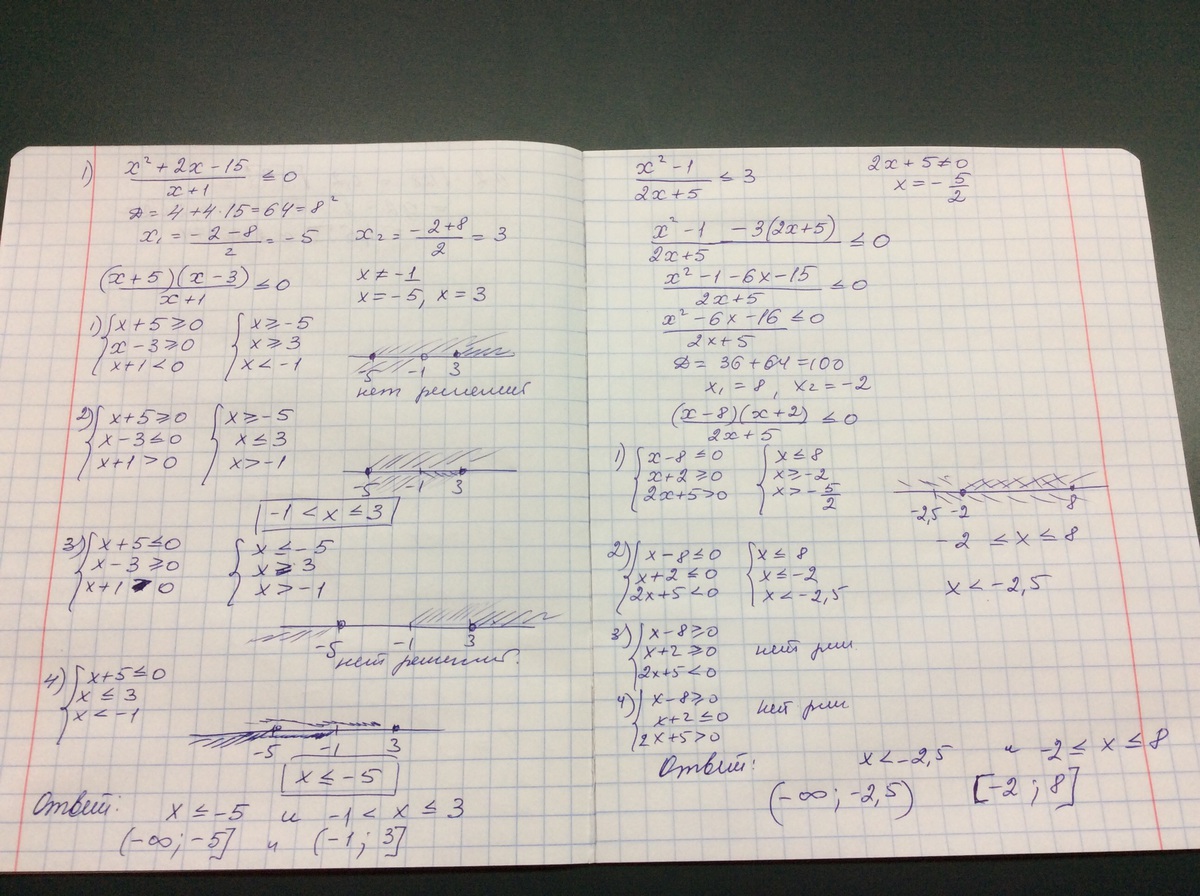 1) (x² + 2x - 15)/(x+1) ≤ 0
D = 4 + 4·15 = 64 = 8²
x₁ = (-2-8)/2 = -5   x₂ = (-2+8)/2 = 3
(x+5)(x-3)/(x+1) ≤ 0   x ≠ -1
x = -5, x = 3
1) { x+5 ≥ 0   { x ≥ -5
x-3 ≥ 0   x ≥ 3
x+1 < 0   x < -1
-5 -1 3
нет решений
2) { x+5 ≥ 0   { x ≥ -5
x-3 ≤ 0   x ≤ 3
x+1 > 0   x > -1
-5 -1 3
-1 < x ≤ 3
3) { x+5 ≤ 0   { x ≤ -5
x-3 ≥ 0   x ≥ 3
x+1 > 0   x > -1
-5 -1 3
нет решений.
4) { x+5 ≤ 0
x ≤ 3
x < -1
-5 -1 3
x ≤ -5
Ответ: x ≤ -5 и -1 < x ≤ 3
(-∞; -5] и (-1; 3]
(x² - 1)/(2x+5) ≤ 3   2x+5 ≠ 0
x = -5/2
(x² - 1 - 3(2x+5))/(2x+5) ≤ 0
(x² - 1 - 6x - 15)/(2x+5) ≤ 0
(x² - 6x - 16)/(2x+5) ≤ 0
D = 36 + 64 = 100
x₁ = 8, x₂ = -2
(x-8)(x+2)/(2x+5) ≤ 0
1) { x-8 ≤ 0   { x ≤ 8
x+2 ≥ 0   x ≥ -2
2x+5 > 0   x > -5/2
-2,5 -2 8
-2 ≤ x ≤ 8
2) { x-8 ≤ 0   { x ≤ 8
x+2 ≤ 0   x ≤ -2   x < -2,5
2x+5 < 0   x < -2,5
3) { x-8 ≥ 0
x+2 ≥ 0   нет реш
2x+5 < 0
4) { x-8 ≥ 0   нет реш
x+2 ≤ 0
2x+5 > 0
Ответ: x < -2,5 и -2 ≤ x ≤ 8
(-∞; -2,5) [-2; 8]